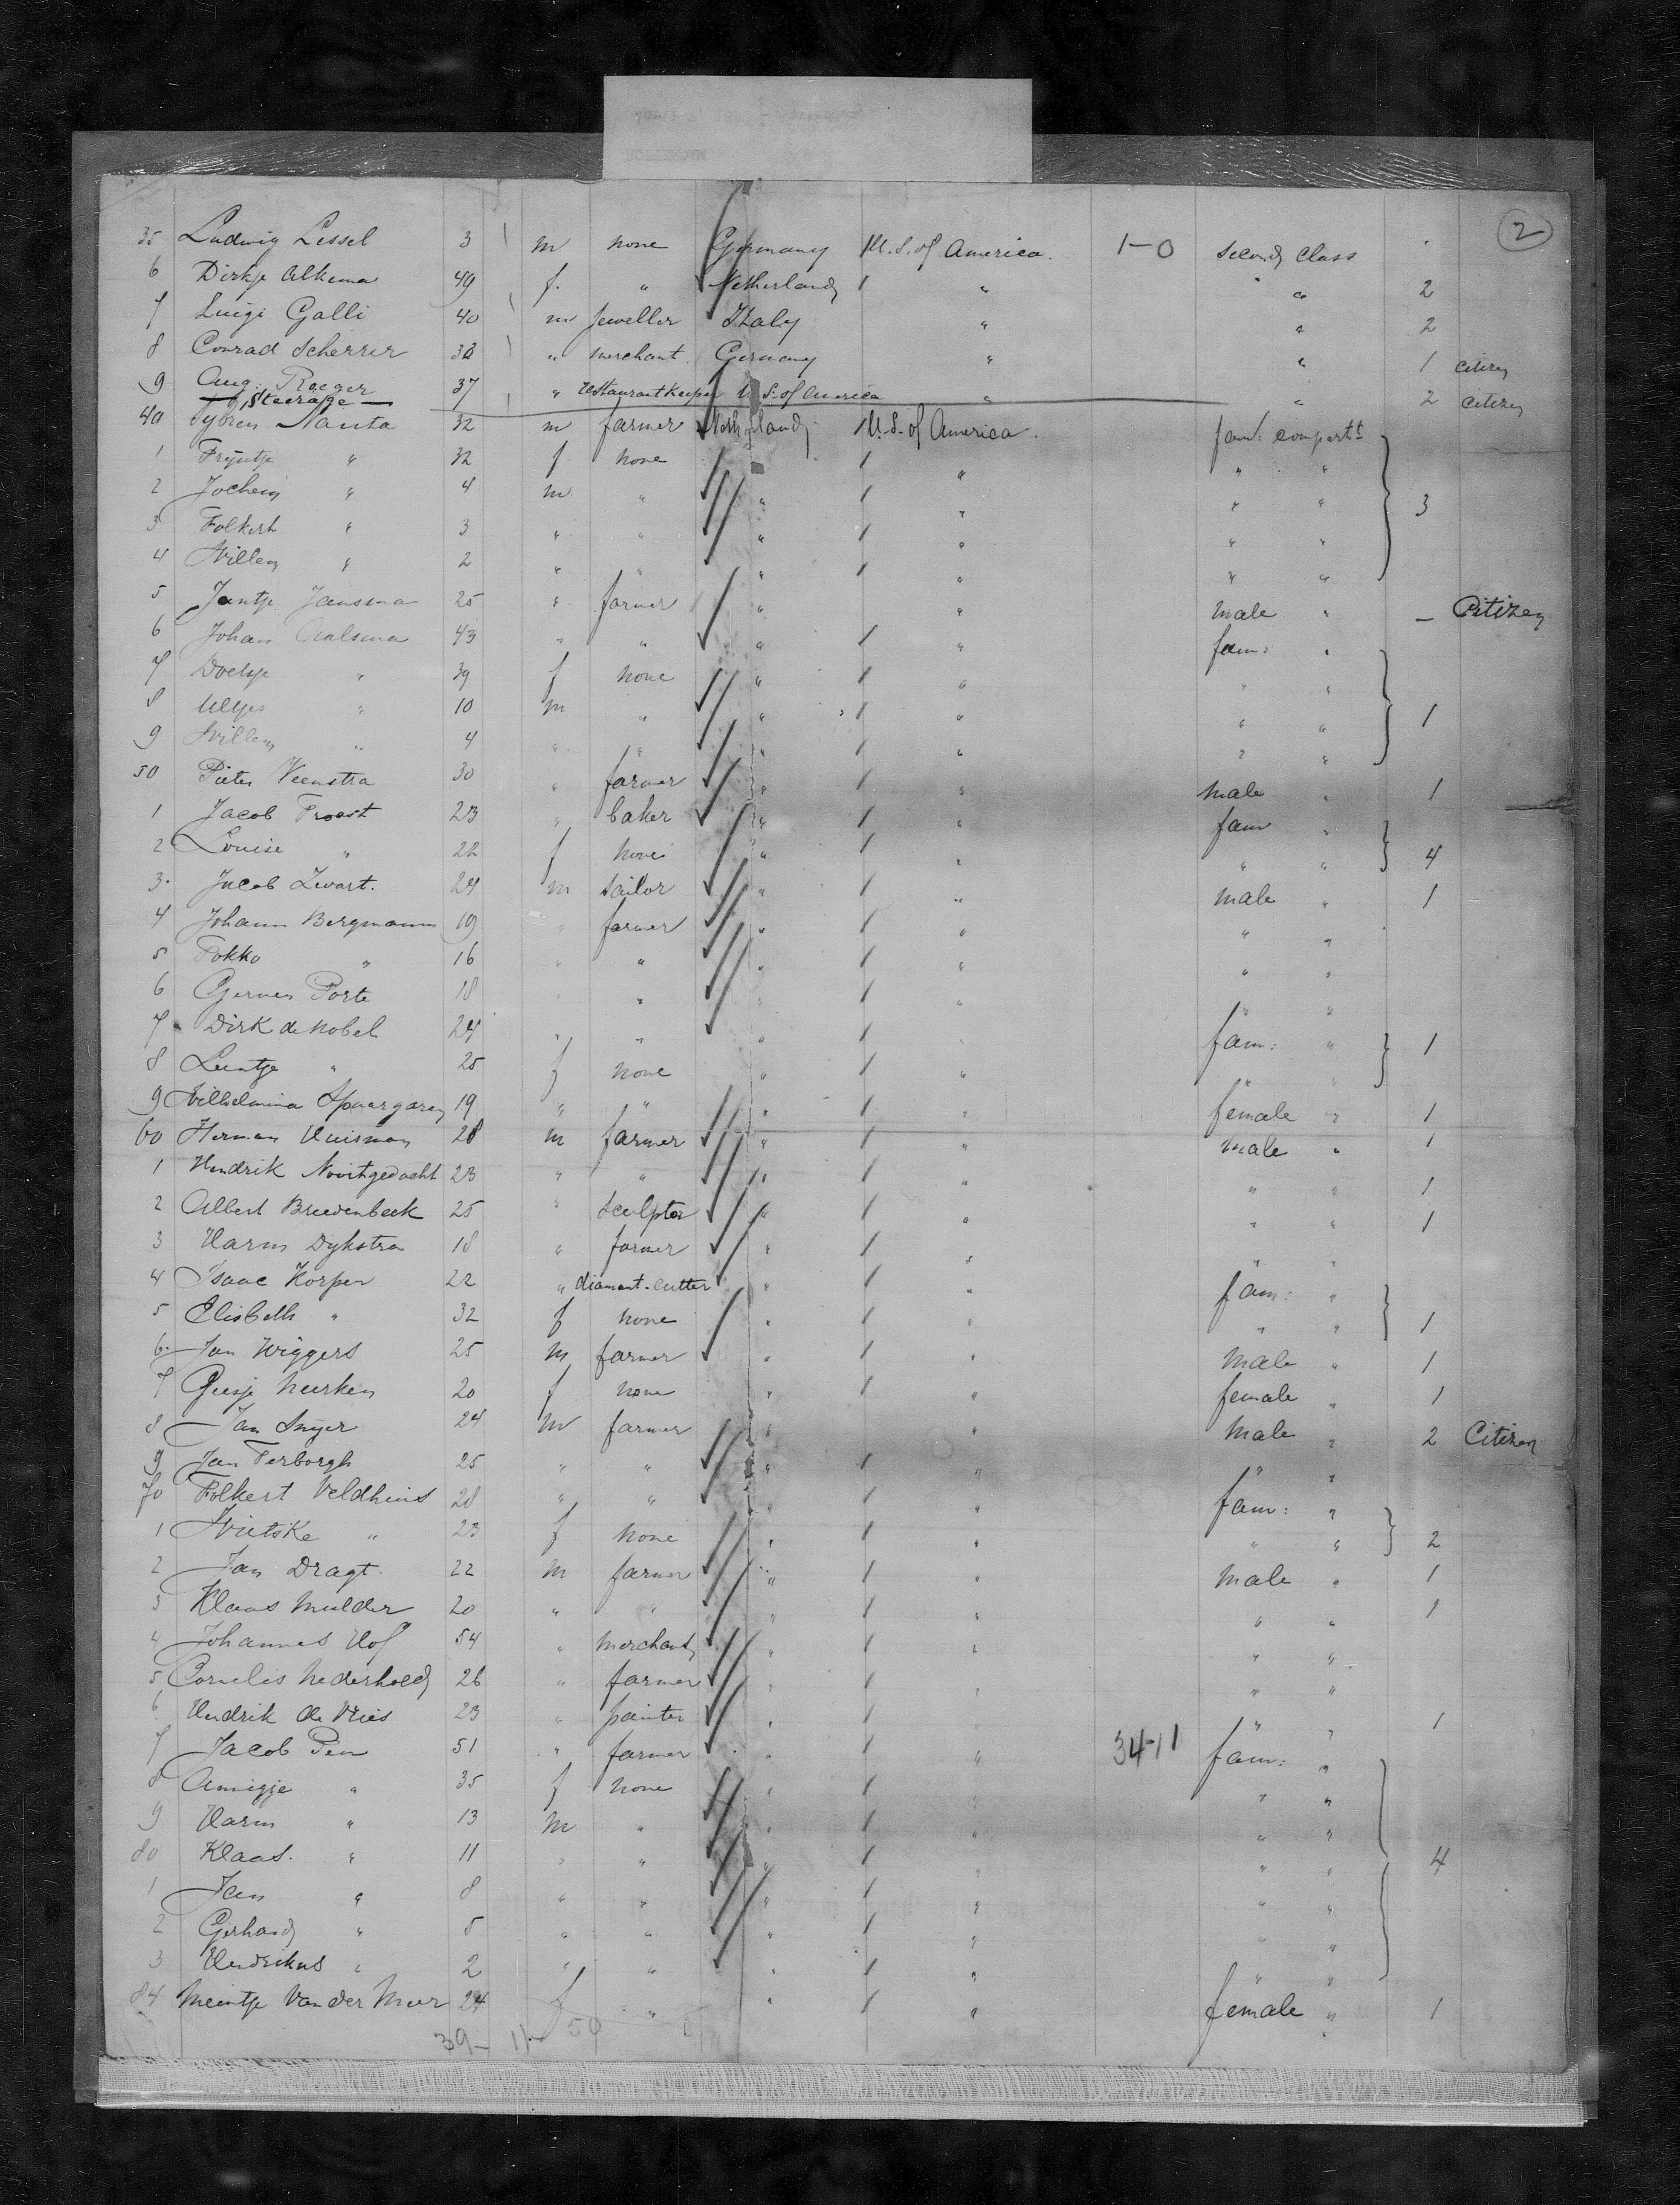 2
35 Ludwig Lessel 3 m none Germany U.S. of America. 1-0 second class
6 Dirkje Alkema 49 f. " Netherlands " " 2
7 Luigi Galli 40 m Jeweller Italy " " 2
8 Conrad Scherrer " merchant Germany " " 1 citizen
9 Aug: Roeger 37 " restaurant keeper U.S. of America " " 2 citizen
Steerage
40 Sybren Nauta 32 m farmer Netherlands U.S. of America. fam: compartt
1 Tryntje " 32 f none " " " "
2 Jochem " 4 m " " " " " 3
3 Folkert " 3 " " " " " "
4 Willem " 2 " " " " " "
5 Jantje Jansma 25 " farmer " " male " — Citizen
6 Johan Aalsma 43 " " " " fam: "
7 Doetje " 39 f none " " " "
8 " 10 m " " " " " 1
9 Willem " 4 " " " " " "
50 Pieter Veenstra 30 " farmer " " male " 1
1 Jacob Proost 23 " baker " " fam "
2 Louise " 22 f none " " " " 4
3. Jacob Zwart. 24 m sailor " " male " 1
4 Johann Bergmann 19 " farmer " " " "
5 Fokko " 16 " " " " " "
6 Porte 18 " " " " " "
7 Dirk de Nobel 24 " " " " fam: " 1
8 Leentje " 25 f none " " " "
9 Wilhelmina Spaargaren 19 " " " " female " 1
60 Herman Huisman 28 m farmer " " male " 1
1 Hendrik Nooitgedacht 23 " " " " " " 1
2 Albert Breedenbeek 25 " sculptor " " " " 1
3 Harm Dykstra 18 " farmer " " " "
4 Isaac Korper 22 " diamant-cutter " " fam: "
5 Elisbeth " 32 f none " " " " 1
6. Jan Wiggers 25 m farmer " " male " 1
7 Geesje Meerken 20 f none " " female " 1
8 Jan Snyer 24 m farmer " " male " 2 Citizen
9 Jan Terborgh 25 " " " " " "
70 Folkert Veldhuis 28 " " " " fam: "
1 Wietske " 23 f none " " " " 2
2 Jan Dragt. 22 m farmer " " male " 1
3 Klaas Mulder 20 " " " " " " 1
4 Johannes Hof 54 " merchant " " " "
5 Cornelis Nederhoed 26 " farmer " " " "
6 Hendrik de Vries 23 " painter " " " " 1
7 Jacob Pen 51 " farmer " " 34-11 fam: "
8 Annigje " 35 f none " " " "
9 Harm " 13 m " " " " "
80 Klaas. " 11 " " " " " " 4
1 Jan " 8 " " " " " "
2 Gerhard " 5 " " " " " "
3 Hendrikus " 2 " " " " " "
84 Meintje Van der Meer 24 f " " " female " 1
39- 11- 50